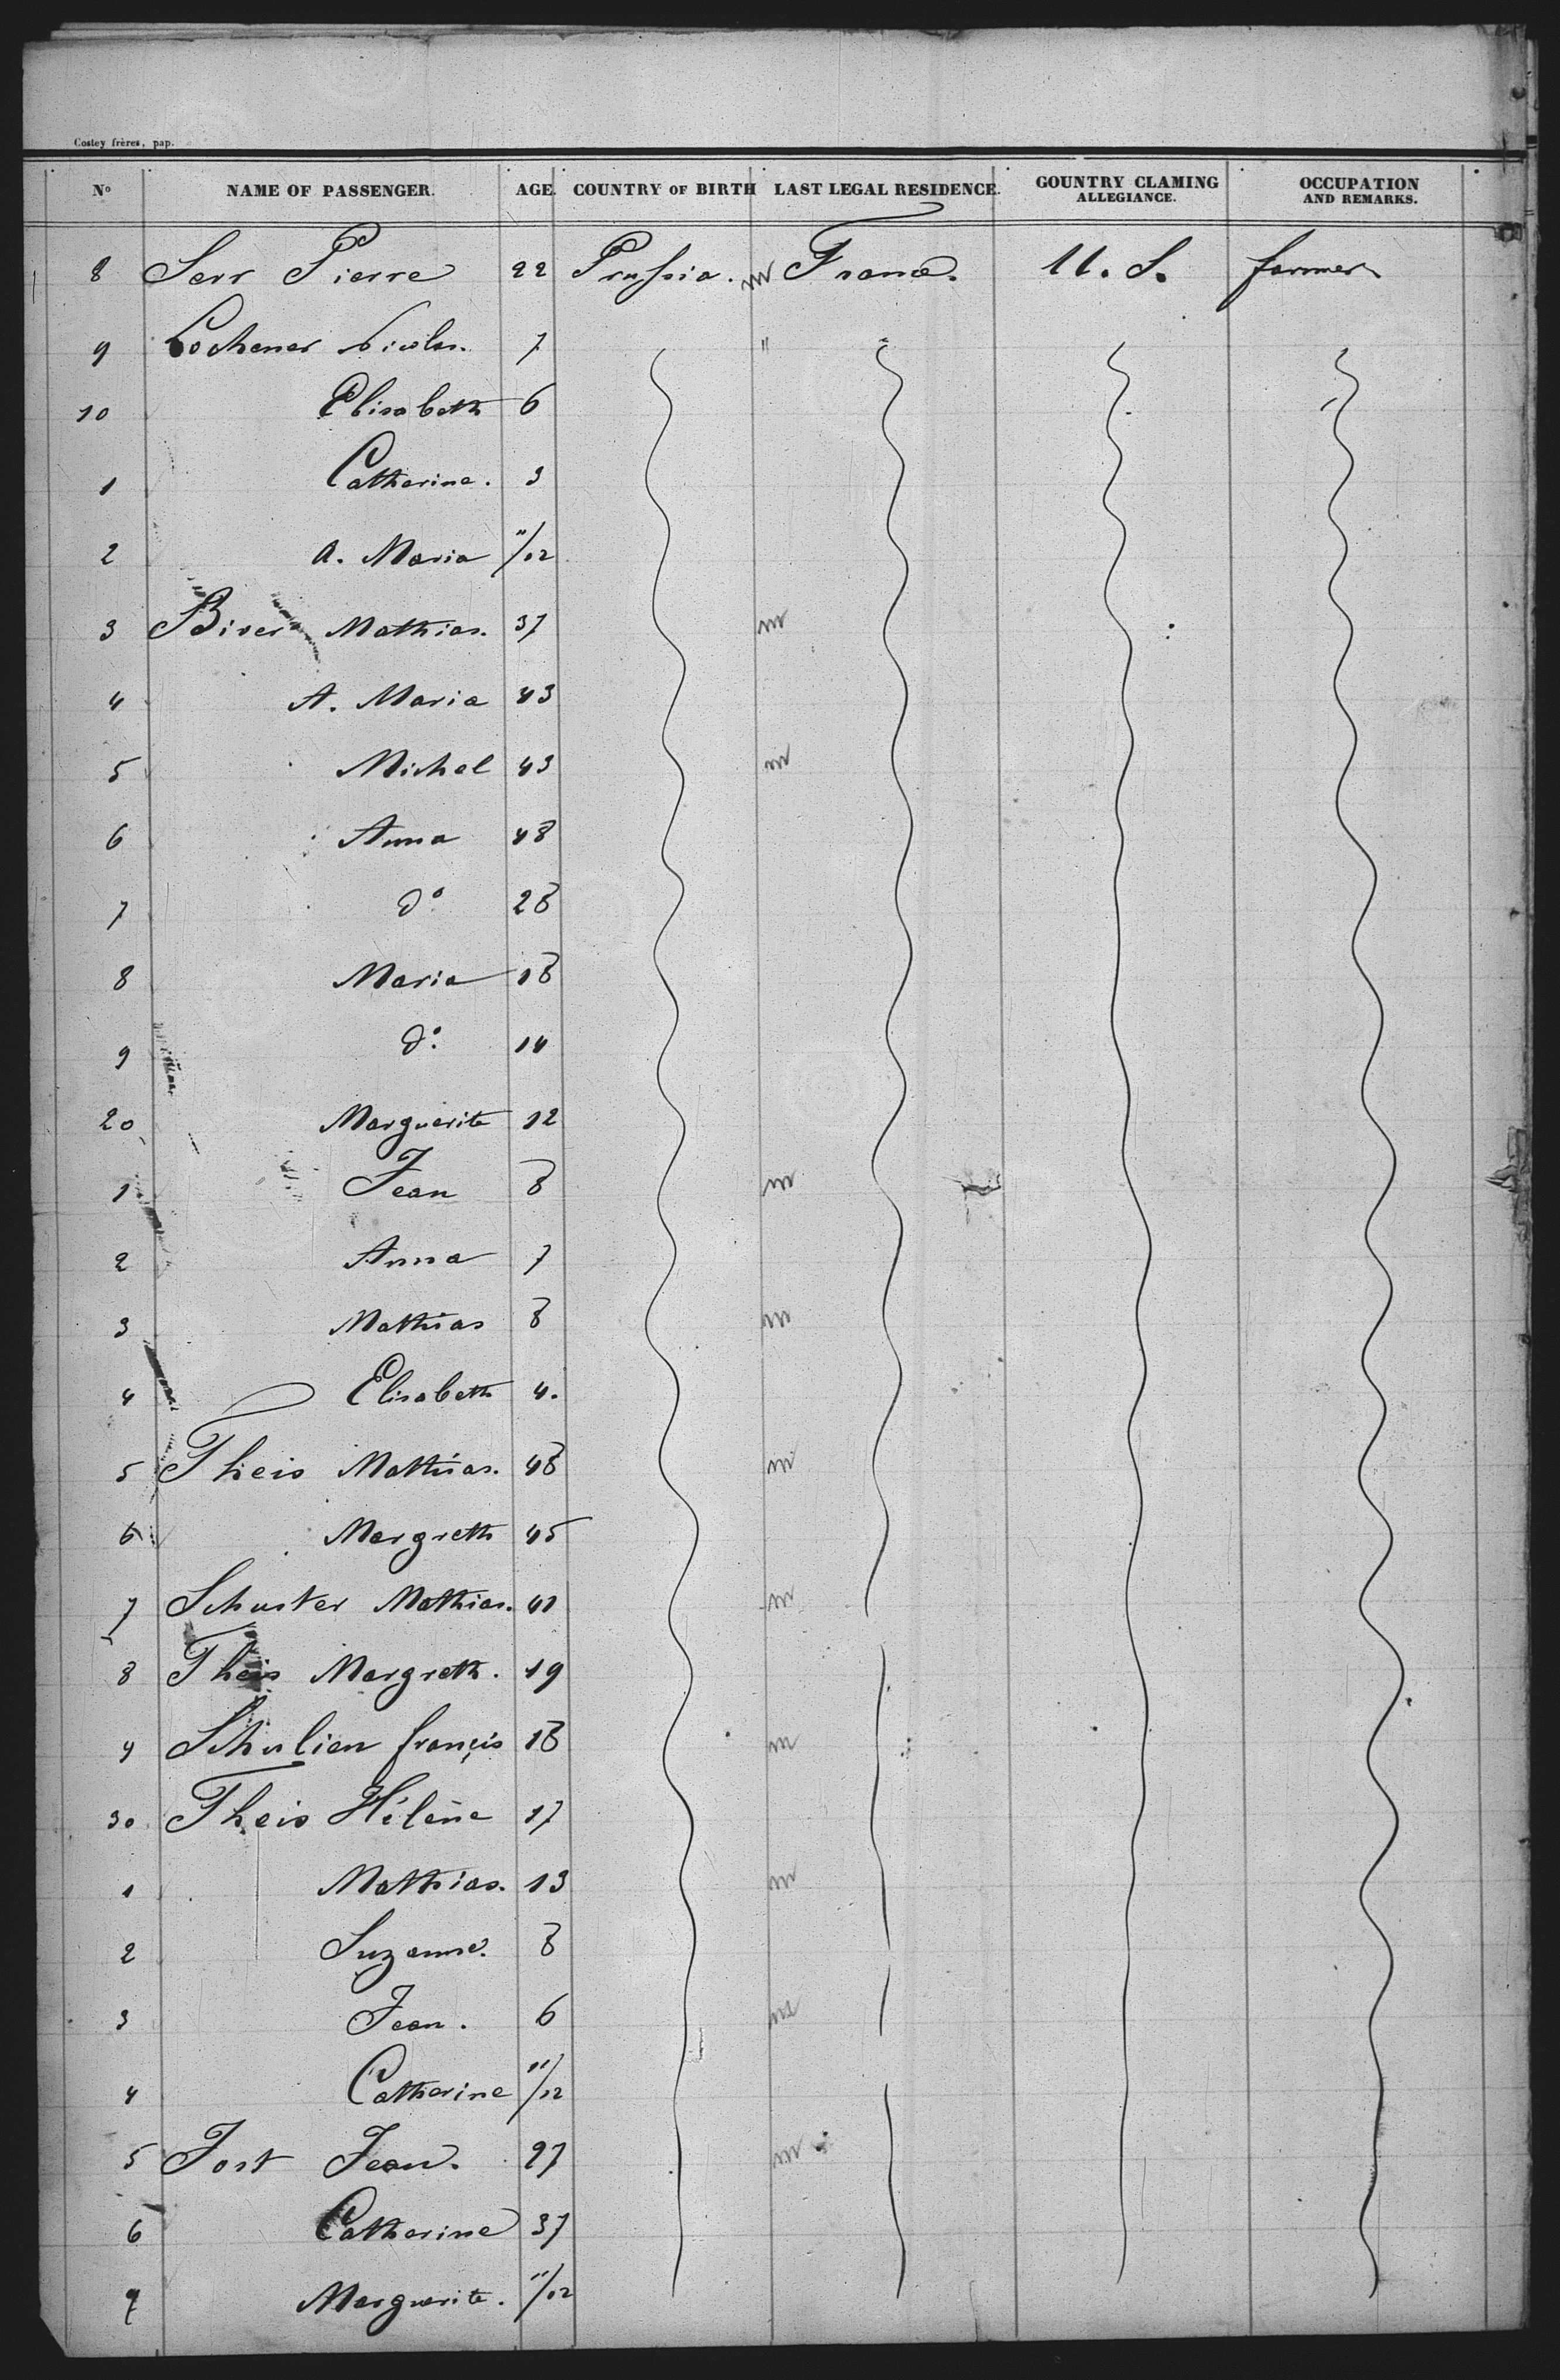 Costey frères, pap.
N° NAME OF PASSENGER. AGE. COUNTRY OF BIRTH LAST LEGAL RESIDENCE. COUNTRY CLAMING ALLEGIANCE. OCCUPATION AND REMARKS.
8 Serr Pierre 22 Prussia. m France. U. S. farmer
9 Lochener Nicolas. 7 "
10 Elisabeth 6
1 Catherine. 3
2 A. Maria 11/12
3 Biver Mathias. 37 m
4 A. Maria 43
5 Michel 43 m
6 Anna 48
7 do 28
8 Maria 18
9 do 14
20 Marguerite 12
1 Jean 8 m
2 Anna 7
3 Mathias 8 m
4 Elisabeth 4.
5 Theis Mathias. 48 m
6 Margreth 45
7 Schuster Mathias. 41 m
8 Theis Margreth. 19
9 Schulien françis 18 m
30 Theis Hélène 17
1 Mathias. 13 m
2 Suzanne. 8
3 Jean. 6 m
4 Catherine 11/12
5 Jost Jean. 27 m
6 Catherine 37
7 Marguerite. 11/12